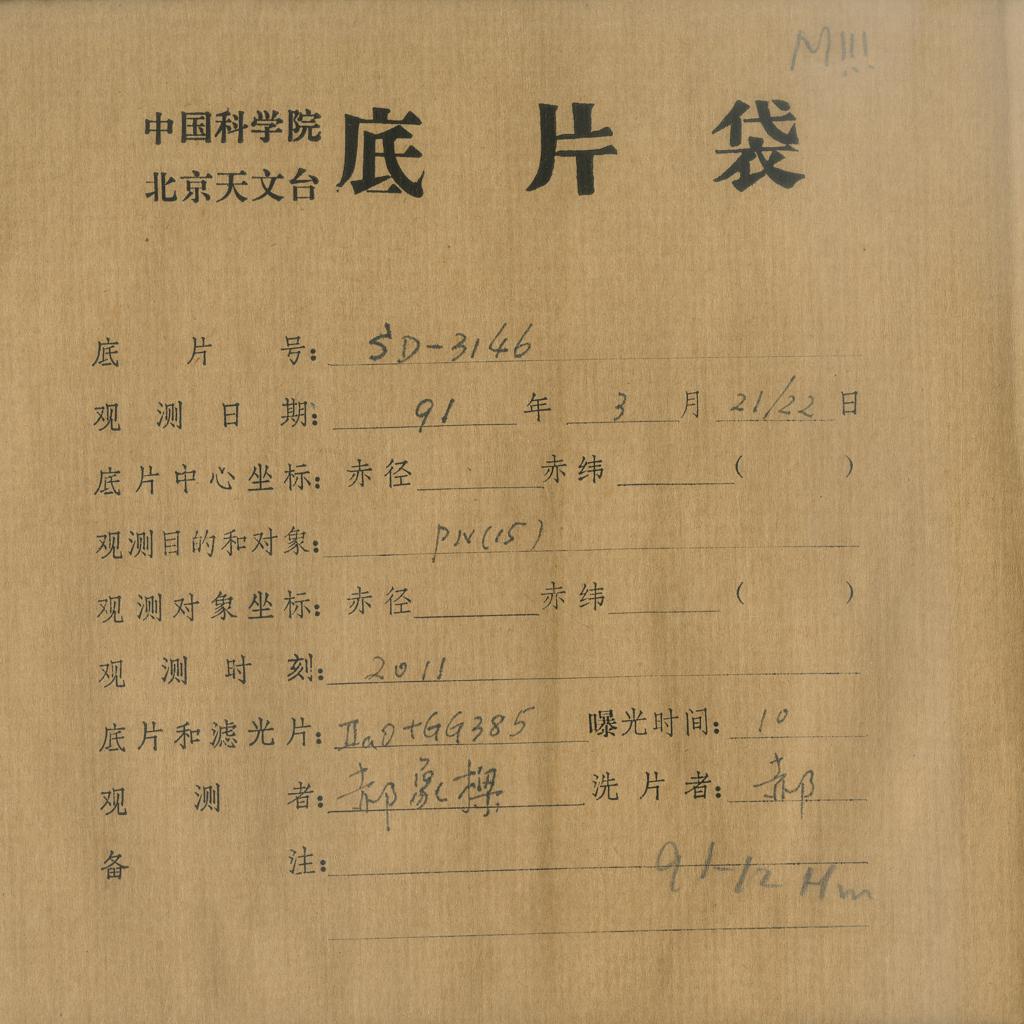 M!!!
中国科学院
北京天文台
底片袋
底片号: SD-3146
观测日期: 91年3月21/22日
底片中心坐标: 赤径 赤纬 ( )
观测目的和对象: PN(15)
观测对象坐标: 赤径 赤纬 ( )
观测时刻: 2011
底片和滤光片: IIaD+GG385 曝光时间: 10
观测者: 郝象樑 洗片者: 郝
备注:
91-12 Hm